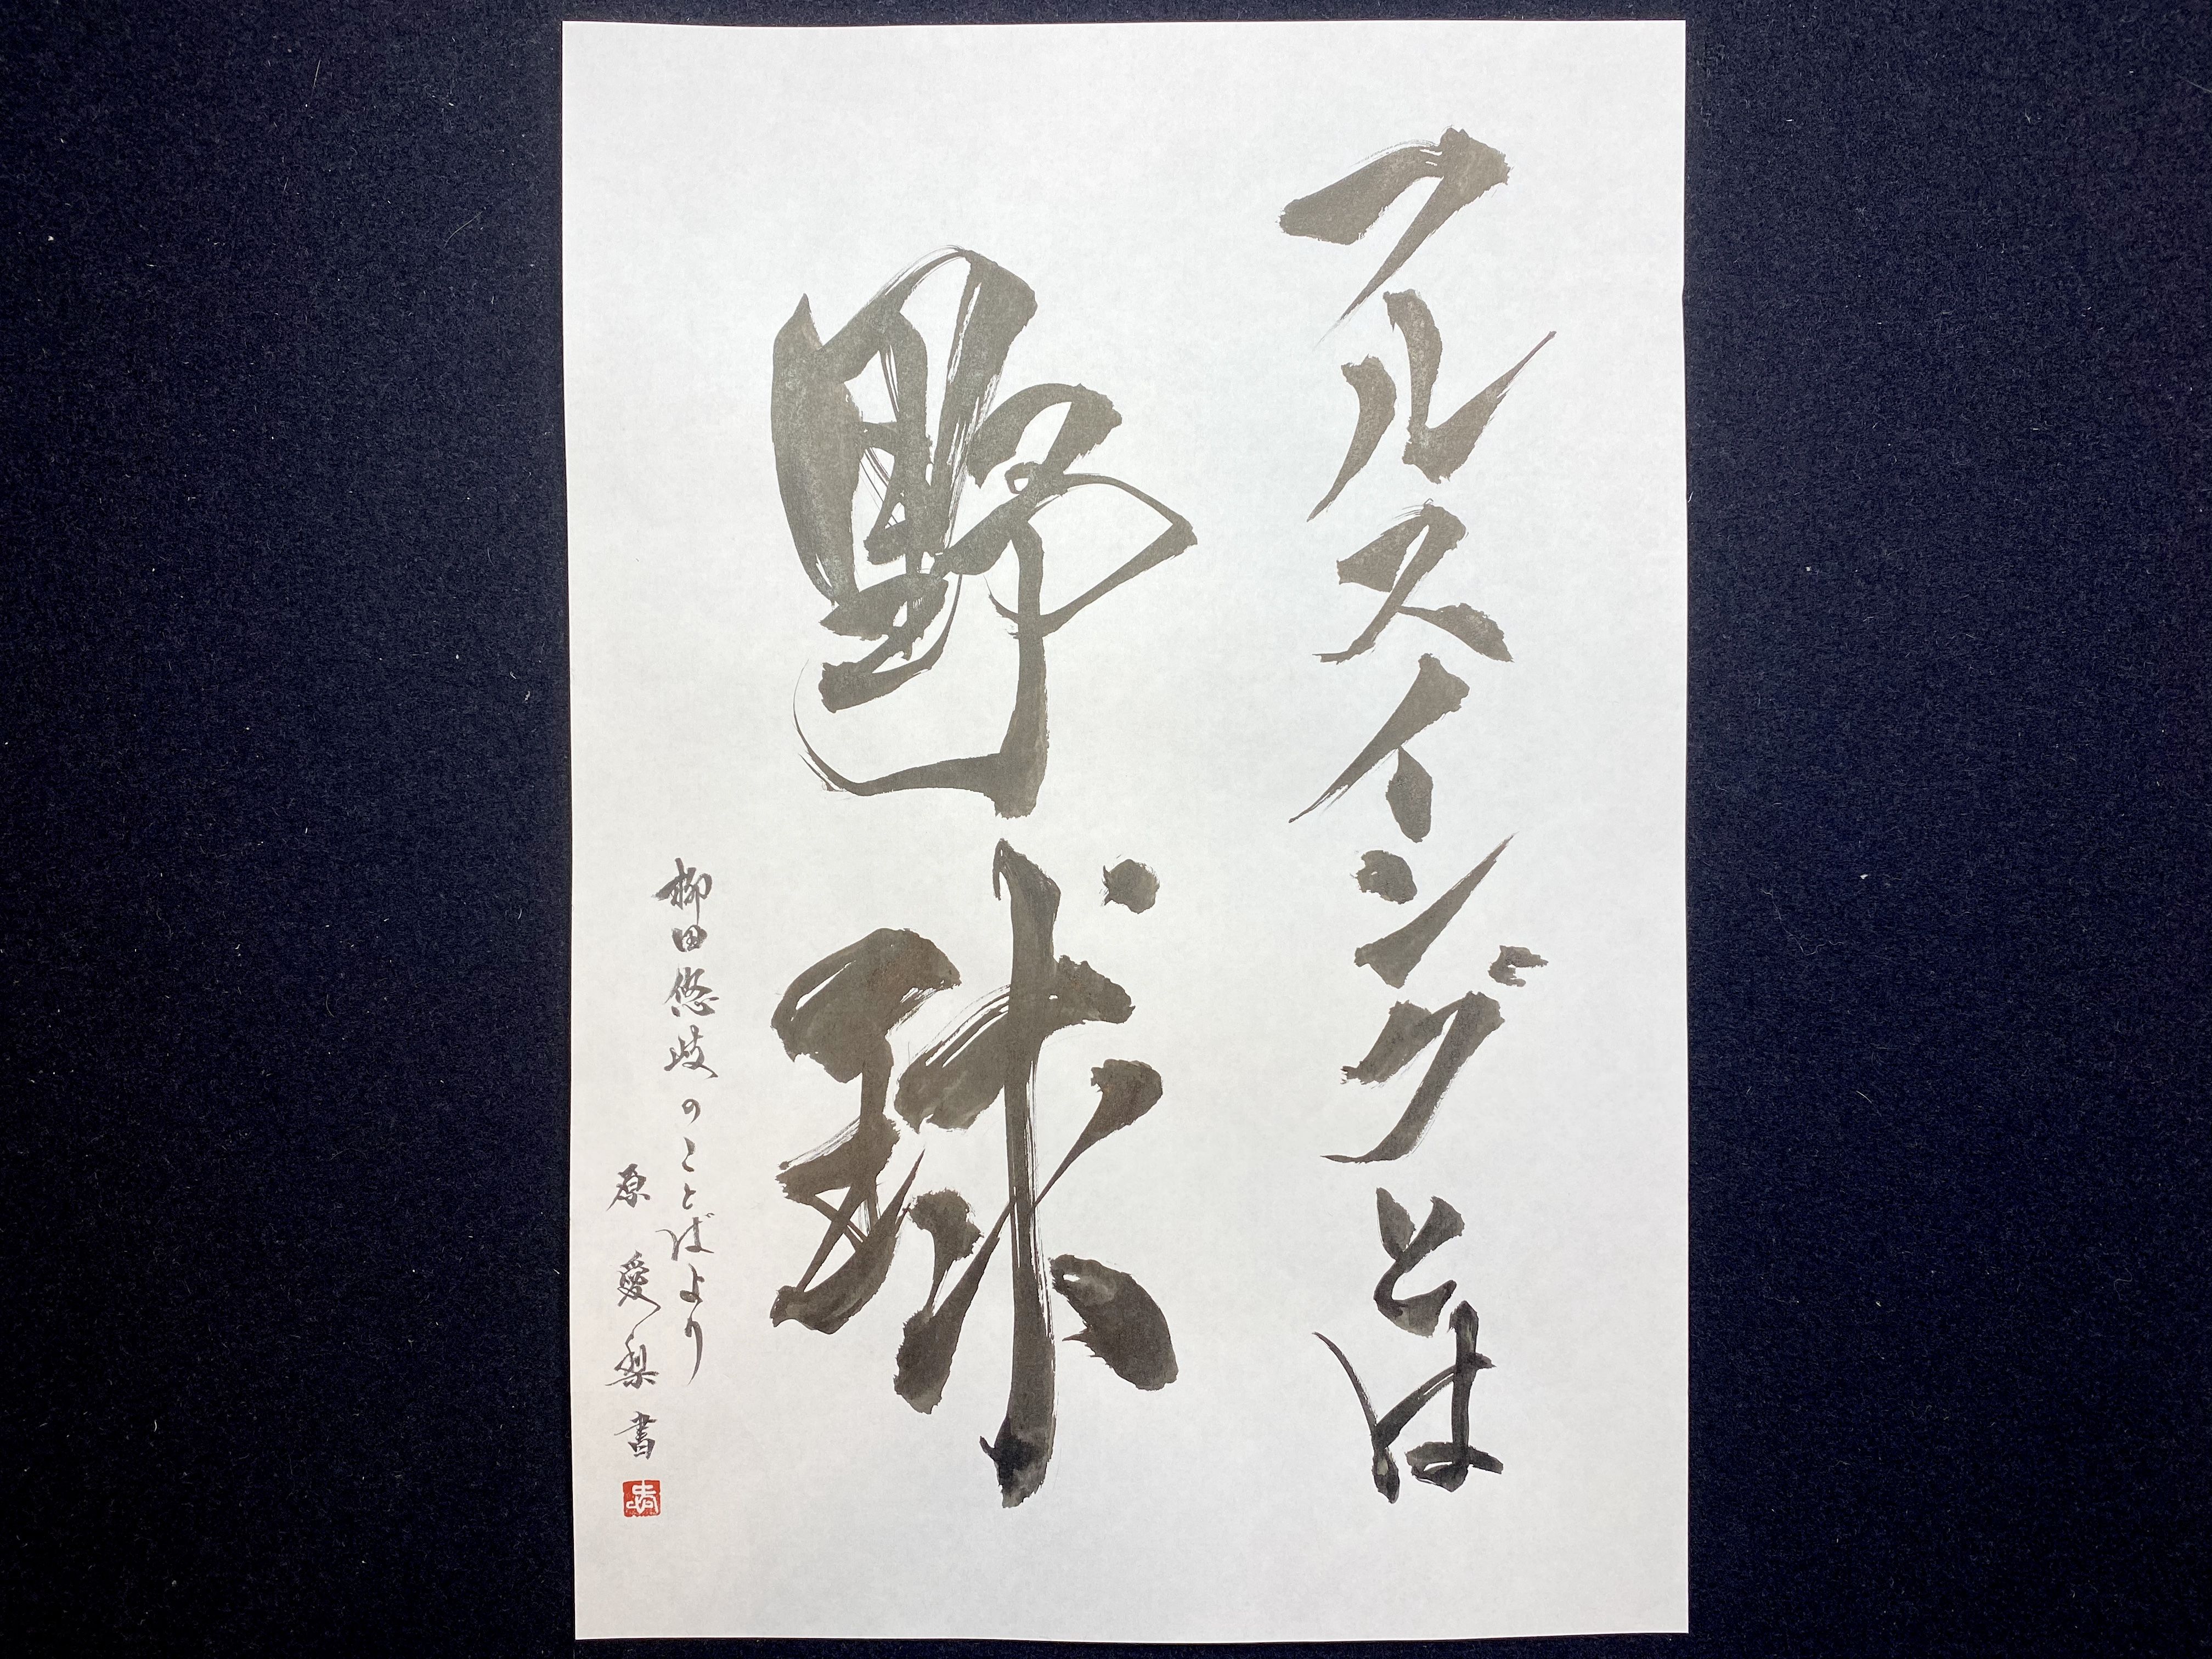 フルスイングとは
野球
柳田悠岐のことばより
原愛梨書